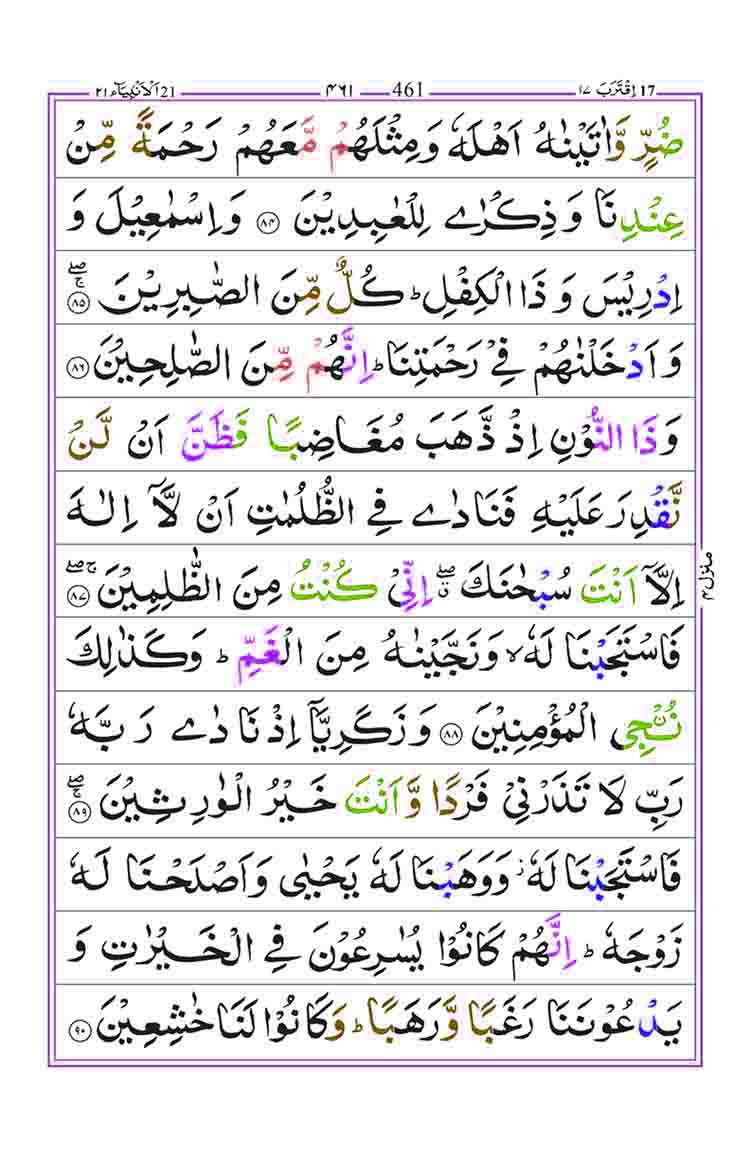 اِقْتَرَبَ ١٧ 17 ــ ٤٦١ ــ 461 ــ اَلْاَنْۢبِيَآء ٢١ 21
ضُرٍّ وَّاٰتَيْنٰهُ اَهْلَهٗ وَمِثْلَهُمْ مَّعَهُمْ رَحْمَةً مِّنْ
عِنْدِنَا وَذِكْرٰى لِلْعٰبِدِيْنَ ﴿۸۴﴾ وَاِسْمٰعِيْلَ وَ
اِدْرِيْسَ وَ ذَا الْكِفْلِ ؕ كُلٌّ مِّنَ الصّٰبِرِيْنَ ﴿۸۵﴾ ۚۖ
وَاَدْخَلْنٰهُمْ فِىْ رَحْمَتِنَا ؕ اِنَّهُمْ مِّنَ الصّٰلِحِيْنَ ﴿۸۶﴾
وَ ذَا النُّوْنِ اِذْ ذَّهَبَ مُغَاضِبًا فَظَنَّ اَنْ لَّنْ
نَّقْدِرَ عَلَيْهِ فَنَادٰى فِى الظُّلُمٰتِ اَنْ لَّاۤ اِلٰهَ
اِلَّاۤ اَنْتَ سُبْحٰنَكَ ۖ اِنِّىْ كُنْتُ مِنَ الظّٰلِمِيْنَ ﴿۸۷﴾ ۚۖ
فَاسْتَجَبْنَا لَهٗ ۙ وَنَجَّيْنٰهُ مِنَ الْغَمِّ ؕ وَكَذٰلِكَ
نُـْۨجِى الْمُؤْمِنِيْنَ ﴿۸۸﴾ وَ زَكَرِيَّاۤ اِذْ نَادٰى رَبَّهٗ
رَبِّ لَا تَذَرْنِىْ فَرْدًا وَّاَنْتَ خَيْرُ الْوٰرِثِيْنَ ﴿۸۹﴾ ۚۖ
فَاسْتَجَبْنَا لَهٗ ؗ وَوَهَبْنَا لَهٗ يَحْيٰى وَاَصْلَحْنَا لَهٗ
زَوْجَهٗ ؕ اِنَّهُمْ كَانُوْا يُسٰرِعُوْنَ فِى الْخَيْرٰتِ وَ
يَدْعُوْنَنَا رَغَبًا وَّرَهَبًا ؕ وَكَانُوْا لَنَا خٰشِعِيْنَ ﴿۹۰﴾
منزل ۴